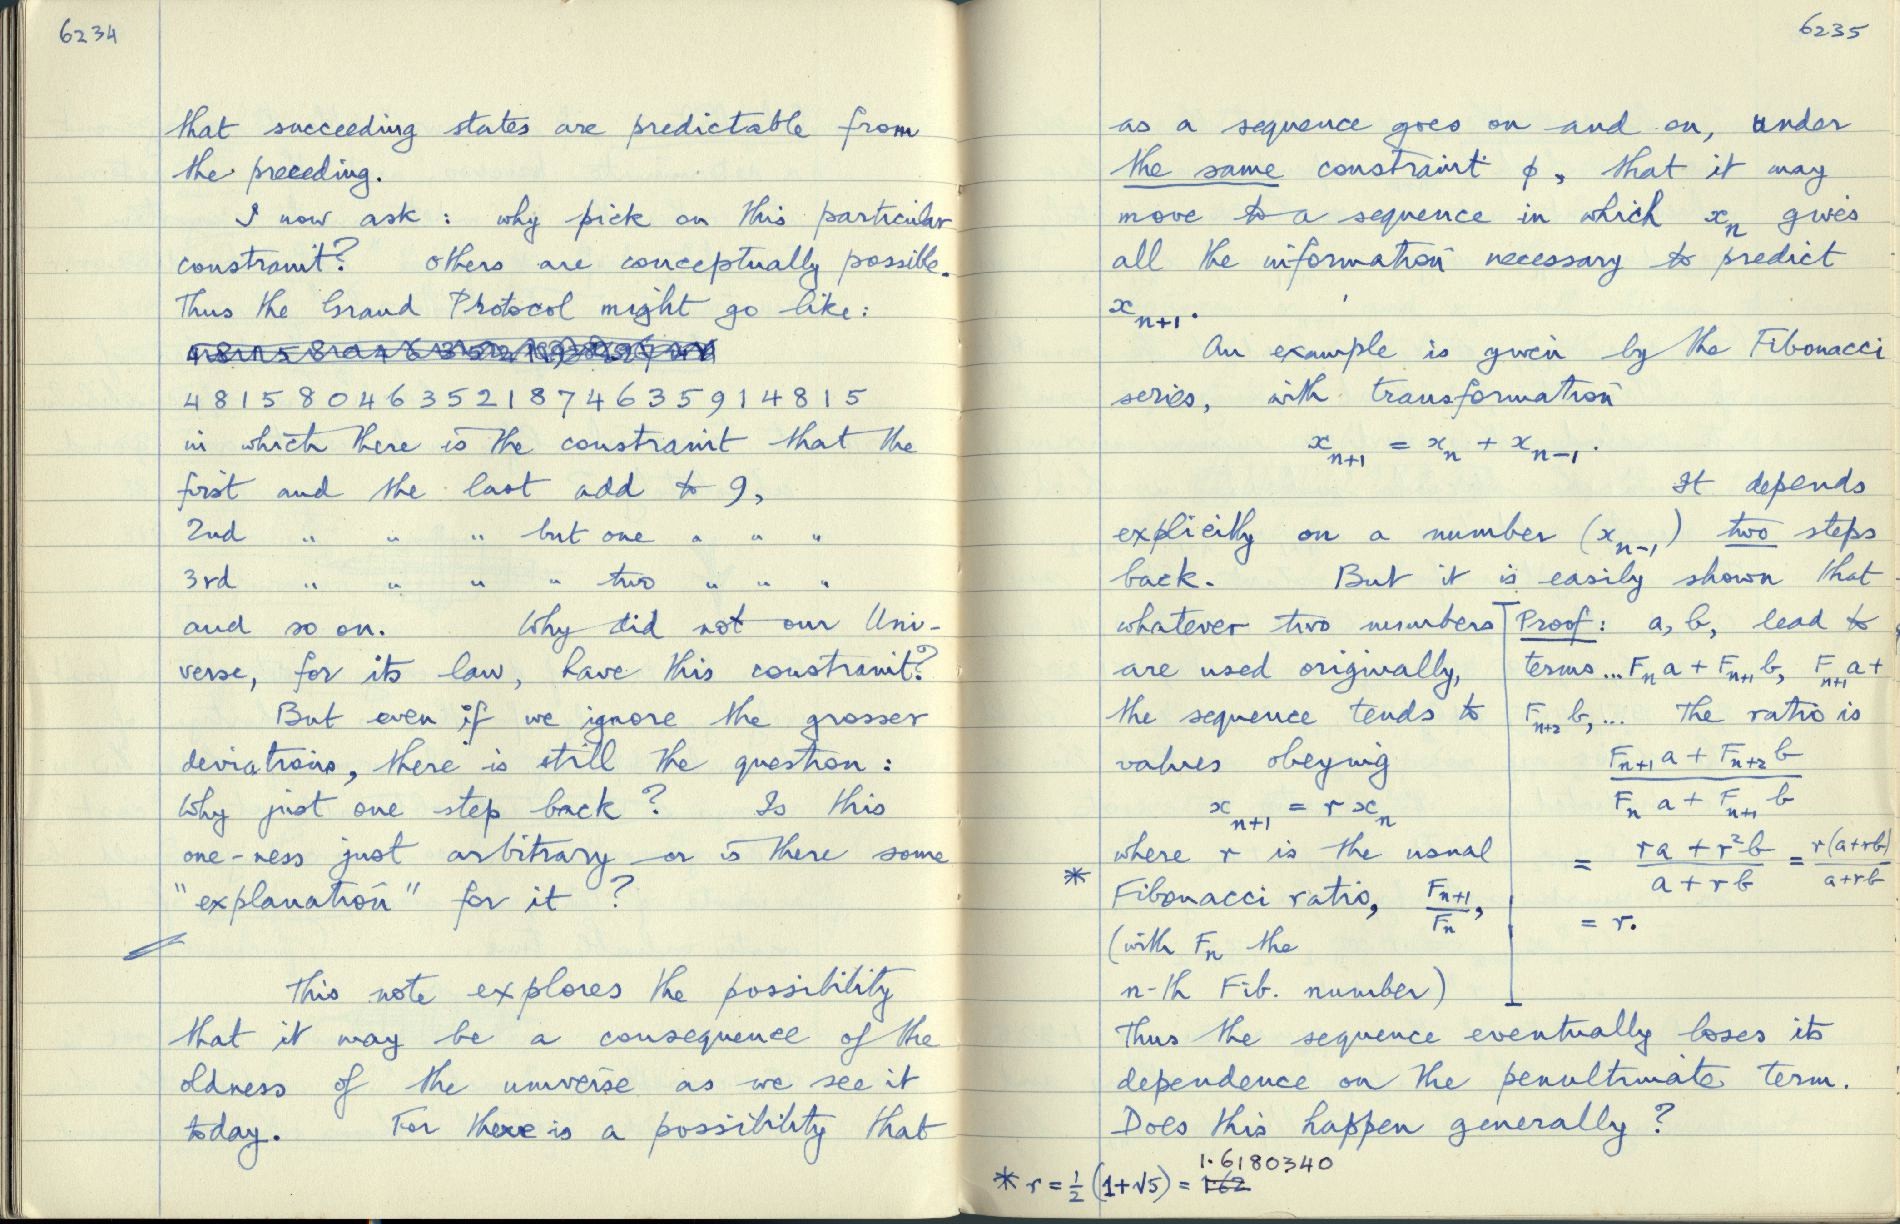 6234
that succeeding states are predictable from
the preceding.
I now ask : why pick on this particular
constraint? Others are conceptually possible.
Thus the Grand Protocol might go like :
4 8 1 5 8 0 4 6 3 5 2 1 8 7 4 6 3 5 9 1 4 8 1 5
in which there is the constraint that the
first and the last add to 9,
2nd " " " but one " " "
3rd " " " " two " " "
and so on. Why did not our Uni-
verse, for its law, have this constraint?
But even if we ignore the grosser
deviations, there is still the question :
Why just one step back? Is this
one-ness just arbitrary or is there some
"explanation" for it ?
This note explores the possibility
that it may be a consequence of the
oldness of the universe as we see it
today. For there is a possibility that
6235
as a sequence goes on and on, under
the same constraint ϕ, that it may
move to a sequence in which xₙ gives
all the information necessary to predict
xₙ₊₁.
An example is given by the Fibonacci
series, with transformation
xₙ₊₁ = xₙ + xₙ₋₁.
It depends
explicitly on a number (xₙ₋₁) two steps
back. But it is easily shown that
whatever two numbers
are used originally,
the sequence tends to
values obeying
xₙ₊₁ = r xₙ
where r is the usual
* Fibonacci ratio, Fₙ₊₁/Fₙ,
(with Fₙ the
n-th Fib. number)
Proof : a, b, lead to
terms ... Fₙ a + Fₙ₊₁ b, Fₙ₊₁ a +
Fₙ₊₂ b, ... The ratio is
Fₙ₊₁ a + Fₙ₊₂ b
Fₙ a + Fₙ₊₁ b
= ra + r²b / a + rb = r(a+rb) / a+rb
= r.
Thus the sequence eventually loses its
dependence on the penultimate term.
Does this happen generally ?
1.6180340
* r = ½ (1+√5) = 1.62